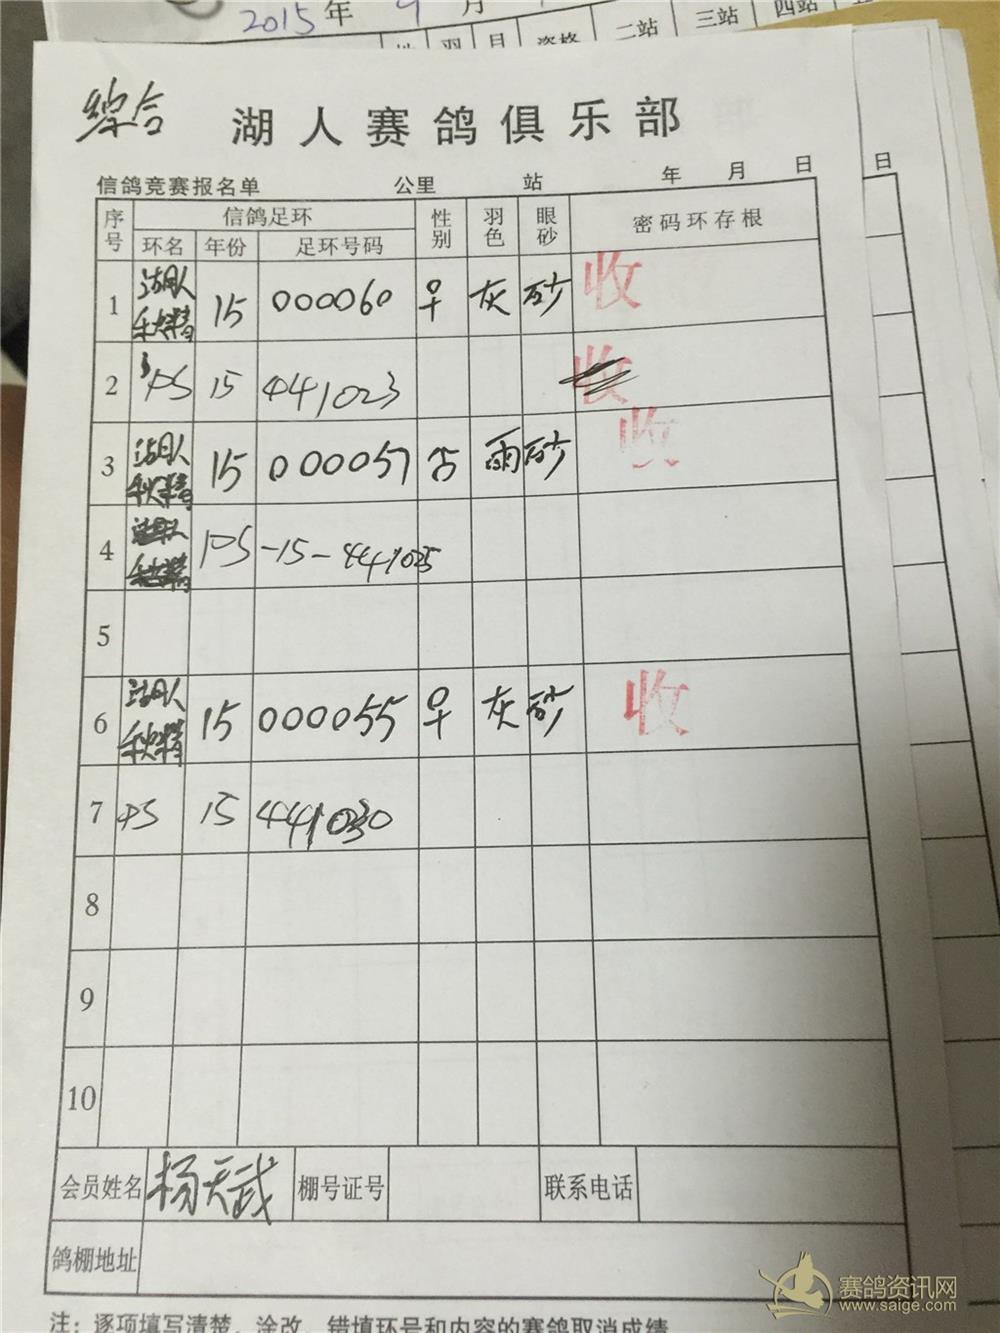 2015年 9 月
羽 资格 二站 三站 四站
综合
湖人赛鸽俱乐部
信鸽竞赛报名单 公里 站 年 月 日
日
序号 信鸽足环 性别 羽色 眼砂 密码环存根
环名 年份 足环号码
1 湖人秋精 15 000060 ♀ 灰 砂 收
2 PS 15 441023 收
3 湖人秋精 15 000057 雨 砂 收
4 PS-15-441025
5
6 湖人秋精 15 000055 ♀ 灰 砂 收
7 PS 15 441030
8
9
10
会员姓名 杨天武 棚号证号 联系电话
鸽棚地址
注：逐项填写清楚，涂改、错填环号和内容的赛鸽取消成绩
赛鸽资讯网
www.saige.com